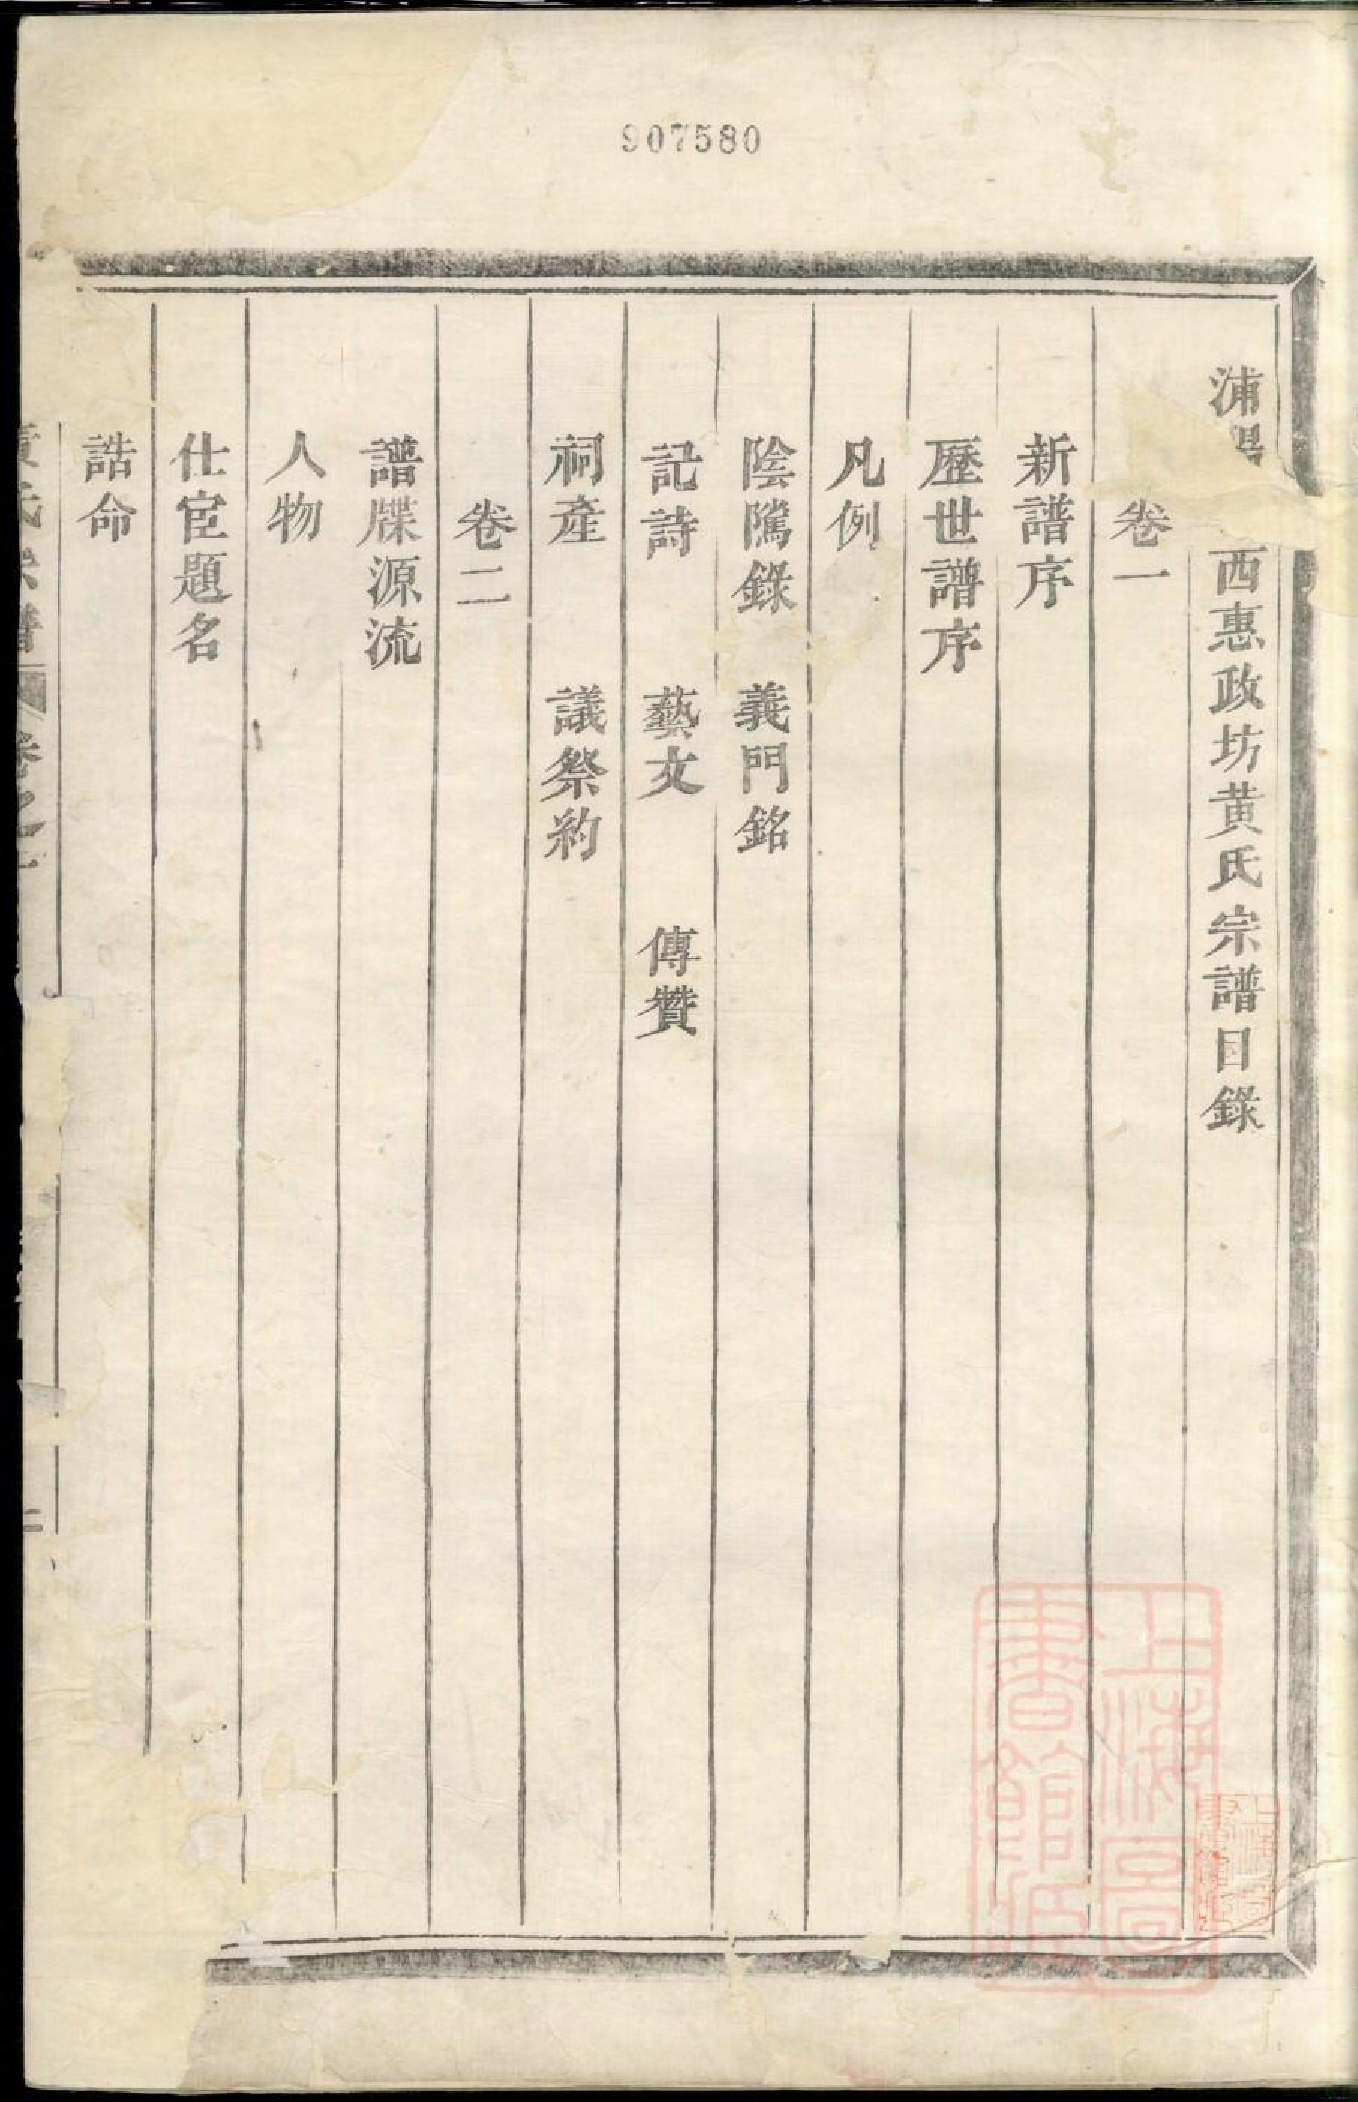 907580
浦陽西惠政坊黄氏宗譜目錄
卷一
新譜序
歷世譜序
凡例
陰隲錄 義門銘
記詩 藝文 傳贊
祠產 議祭約
卷二
譜牒源流
人物
仕宦題名
誥命
上海圖書館藏